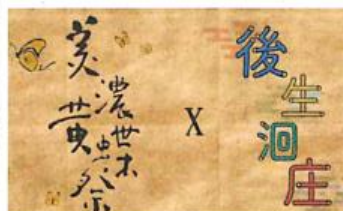 美濃黃蝶祭
X
後生洄庄